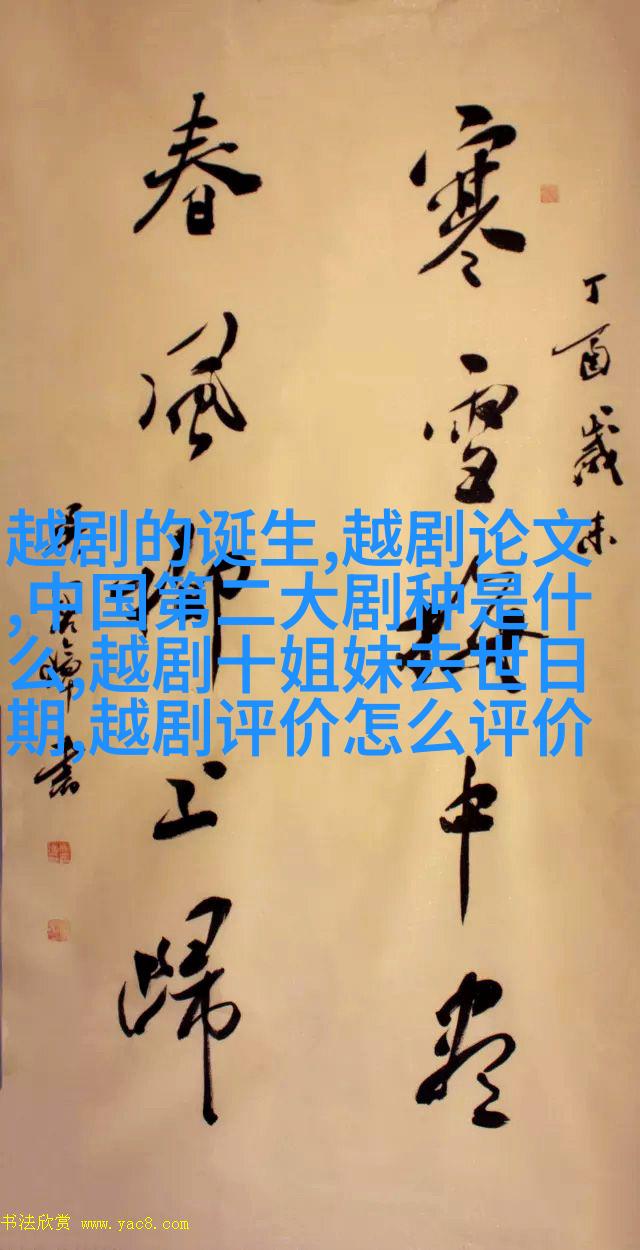 丁酉岁末
寒雪梅中尽
春风柳上归
越剧的诞生,越剧论文
,中国第二大剧种是什
么,越剧十姐妹去世日
期,越剧评价怎么评价
书法欣赏 www.yac8.com